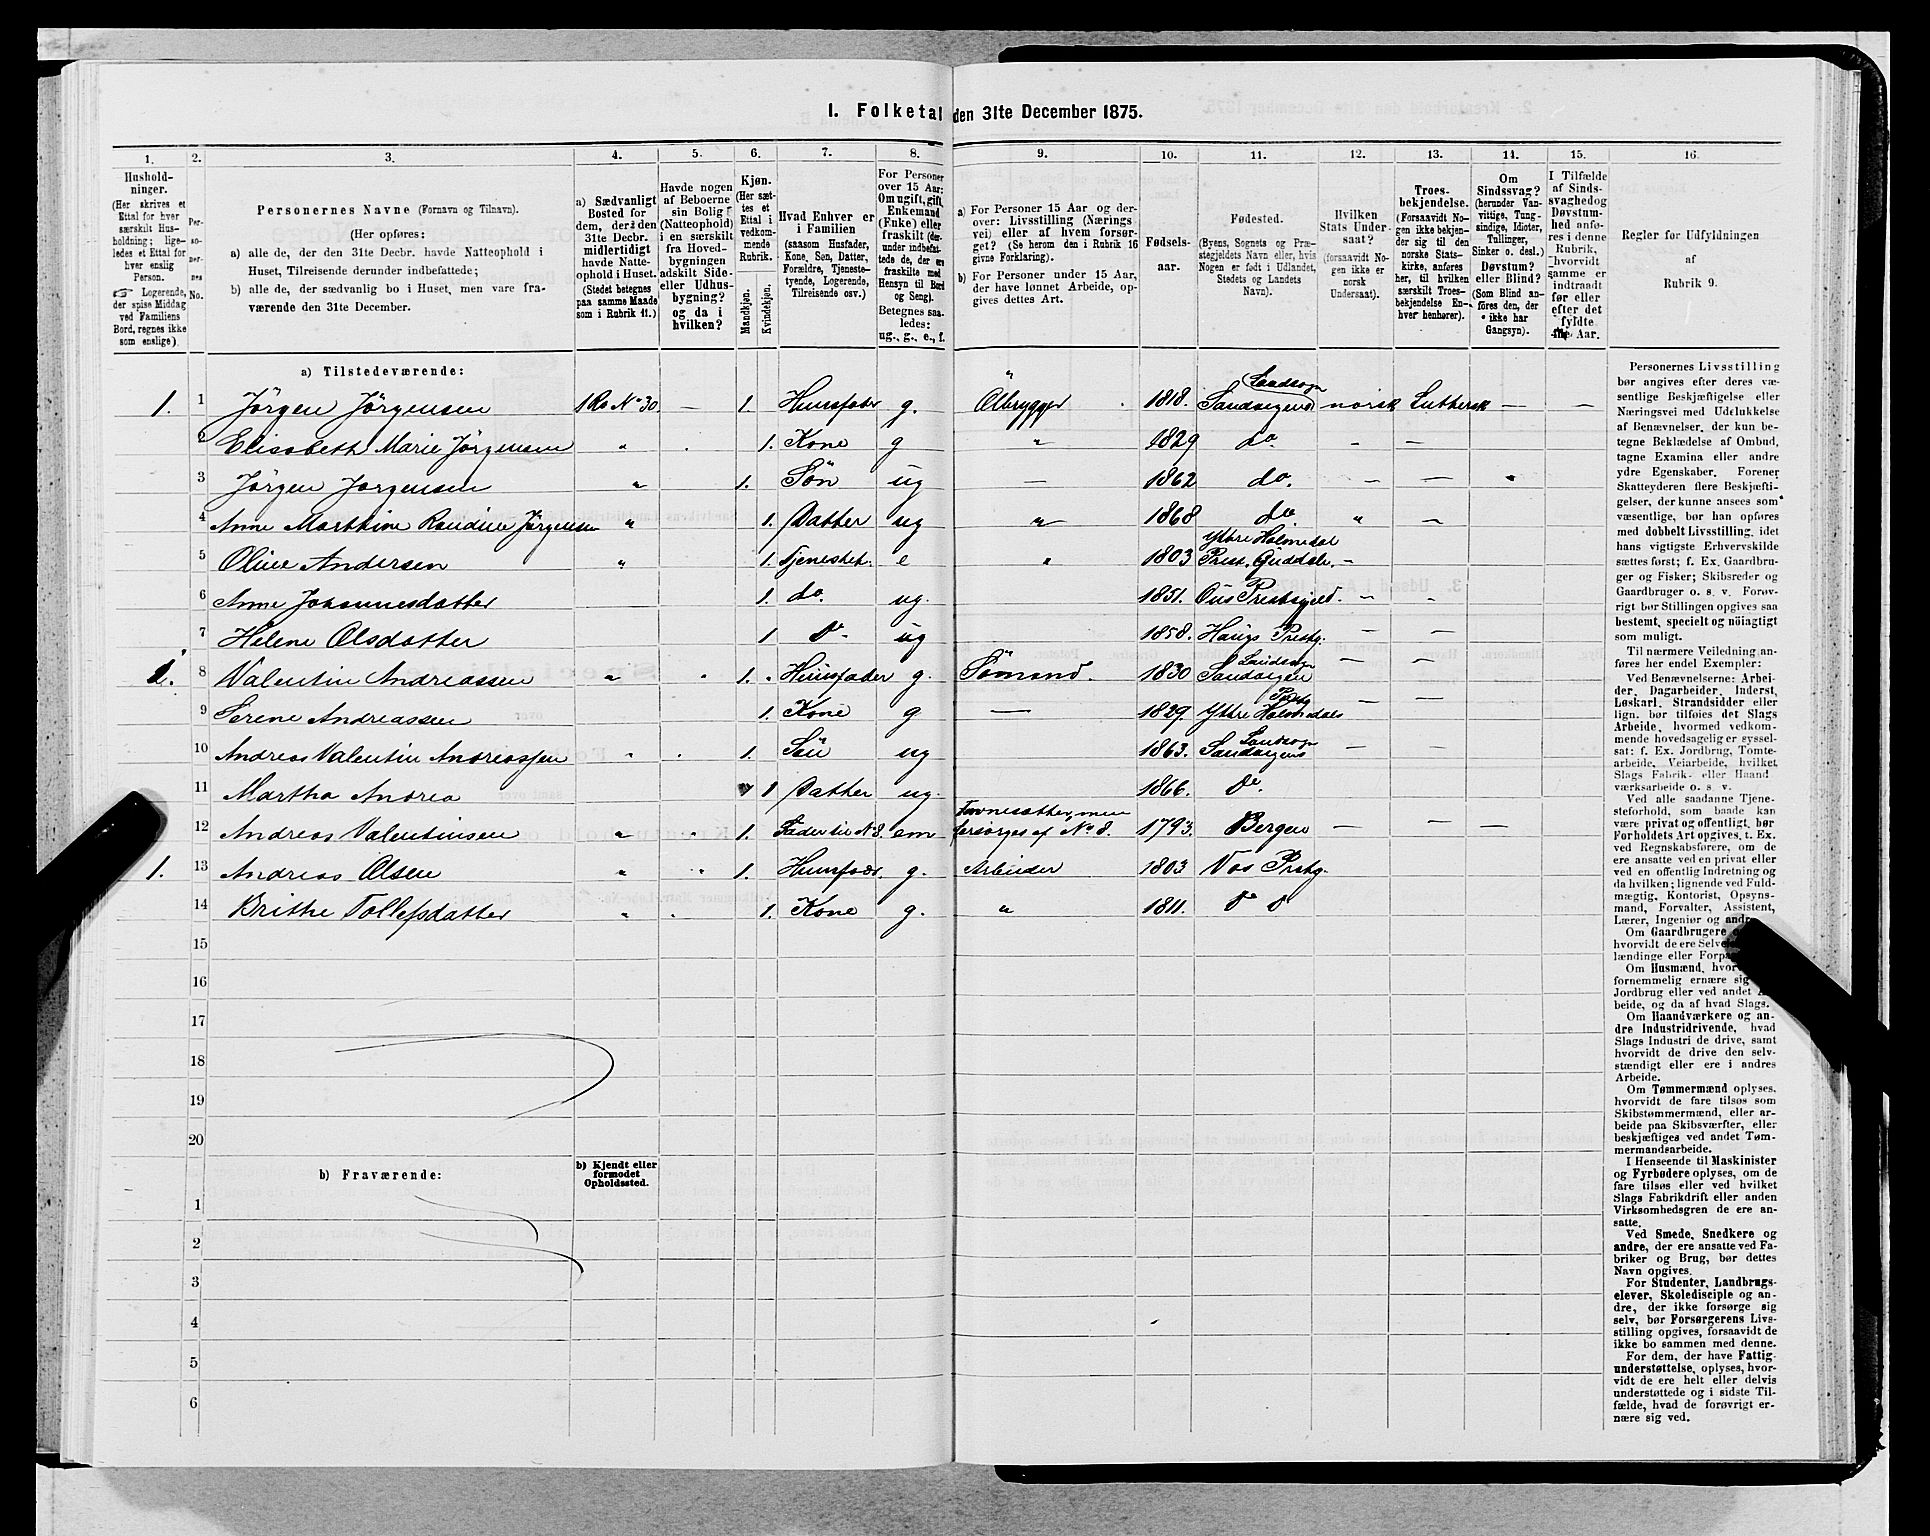 I. Folketal den 31te December 1875.
1. 2. 3. 4. 5. 6. 7. 8. 9. 10. 11. 12. 13. 14. 15. 16.
Hushold-
ninger.
(Her skrives et
Ettal for hver
særskilt Hus-
holdning; lige-
ledes et Ettal for
hver enslig
Person.
☞ Logerende,
der spise Middag
ved Familiens
Bord, regnes ikke
som enslige).
Per-
so-
ner-
nes
No.
Personernes Navne (Fornavn og Tilnavn).
(Her opføres:
a) alle de, der den 31te Decbr. havde Natteophold i
Huset, Tilreisende derunder indbefattede;
b) alle de, der sædvanlig bo i Huset, men vare fra-
værende den 31te December.
a) Sædvanligt
Bosted for
dem, der den
31te Decbr.
midlertidigt
havde Natte-
ophold i Huset.
(Stedet betegnes
paa samme Maade
som i Rubrik 11.)
Havde nogen
af Beboerne
sin Bolig
(Natteophold)
i en særskilt
fra Hoved-
bygningen
adskilt Side-
eller Udhus-
bygning?
og da i
hvilken?
Kjøn.
(Her sæt-
tes et
Ettal i
vedkom-
mende
Rubrik.
Mandkjøn.
Kvindekjøn.
Hvad Enhver er
i Familien
(saasom Husfader,
Kone, Søn, Datter,
Forældre, Tjeneste-
tyende, Logerende,
Tilreisende osv.)
For Personer
over 15 Aar:
Om ugift, gift,
Enkemand
(Enke) eller
fraskilt (der-
under indbefat-
tede de, der ere
fraskilte med
Hensyn til Bord
og Seng).
Betegnes saa-
ledes:
ug., g., e., f.
a) For Personer 15 Aar og der-
over: Livsstilling (Nærings-
vei) eller af hvem forsør-
get? (Se herom den i Rubrik 16
givne Forklaring).
b) For Personer under 15 Aar,
der have lønnet Arbeide, op-
gives dettes Art.
Fødsels-
aar.
Fødested.
(Byens, Sognets og Præ-
stegjeldets Navn eller, hvis
Nogen er født i Udlandet,
Stedets og Landets
Navn).
Hvilken
Stats Under-
saat?
(forsaavidt No-
gen ikke er
norsk
Undersaat).
Troes-
bekjendelse.
(Forsaavidt No-
gen ikke bekjen-
der sig til den
norske Stats-
kirke, anføres
her, til hvilken
særskilt Troes-
bekjendelse En-
hver henhører).
Om
Sindssvag?
(herunder Van-
vittige, Tung-
sindige, Idioter,
Tullinger,
Sinker o. desl.)
Døvstum?
eller Blind?
(Som Blind an-
føres den, der
ikke har
Gangsyn).
I Tilfælde
af Sinds-
svaghed og
Døvstum-
hed anfø-
res i denne
Rubrik,
hvorvidt
samme er
indtraadt
før eller
efter det
fyldte
Aar.
Regler for Udfyldningen
af
Rubrik 9.
a) Tilstedeværende:
1. 1 Jörgen Jörgensen 1 Ro No 30. — 1. Huusfader g. Ölbrygger 1818. Sandvigens Landsogn norsk Luthersk — —
2 Elisabeth Marie Jörgensen " 1. Kone g " 1829 do. - —
3 Jörgen Jorgensen " 1. Sön ug — 1862 do. - —
4 Anne Marthine Randine Jörgensen " 1. Datter ug " 1868 do. " —
5 Oline Andersen " 1. Tjenestet. e " 1803 Yttre Holmedal Prest. Guddals. -
6 Anne Johannesdatter 1. do. ug. 1851. Ous Prestegjeld. - -
7 Helene Olsdatter 1 Do ug 1858. Haugs Prestg. — —
1. 8 Valentin Andreassen " " 1. Huusfader g. Sömand. 1830 Sandvigen Landsogn — —
9 Serene Andreassen 1. Kone g — 1829. Yttre Holmedals Prstg — —
10 Andreas Valentin Andreassen " . 1. Sön ug 1863. Sandvigens Landsogn — —
11 Martha Andrea 1 Datter ug. 1866. Do.
12 Andreas Valentinsen " " 1. Fader til No 8. em forsörges af No 8. 1793. Bergen — — —
1. 13 Andreas Olsen " " 1. Huusfader. g. Arbeider 1803 Vos Prstg.
14 Brithe Tollefsdatter " . 1. Kone g. " 1811. Do Do
15
16
17
18
19
20
b) Fraværende:
b) Kjendt eller
formodet
Opholdssted.
1
2
3
4
5
6
Personernes Livsstilling
bør angives efter deres væ-
sentlige Beskjæftigelse eller
Næringsvei med Udelukkelse
af Benævnelser, der kun be-
tegne Beklædelse af Ombud,
tagne Examina eller andre
ydre Egenskaber. Forener
Skatteyderen flere Beskjæfti-
gelser, der kunne ansees som
væsentlige, bør han opføres
med dobbelt Livsstilling, idet
hans vigtigste Erhvervskilde
sættes først; f. Ex. Gaardbru-
ger og Fisker; Skibsreder og
Gaardbruger o. s. v. Forøv-
rigt bør Stillingen opgives saa
bestemt, specielt og nöiagtigt
som muligt.
Til nærmere Veiledning an-
føres her endel Exempler:
Ved Benævnelserne: Arbei-
der, Dagarbeider, Inderst,
Løskarl, Strandsidder eller
lign. bør tilføies det Slags
Arbeide, hvormed vedkom-
mende hovedsagelig er syssel-
sat: f. Ex. Jordbrug, Tomte-
arbeide, Veiarbeide, hvilket
Slags Fabrik- eller Haand
værksarbeide o. s. v.
Ved alle saadanne Tjene-
steforhold, som baade kan
være privat og offentligt, bør
Forholdets Art opgives, t. Ex.
ved Regnskabsførere, om de
ere ansatte ved en privat eller
ved en offentlig Indretning og
da hvilken; lignende ved Fuld-
mægtig, Kontorist, Opsyns-
mand, Forvalter, Assistent,
Lærer, Ingeniør og andre
Om Gaardbrugere
hvorvidt de ere Selve
lændinge eller Forpa
Om Husmænd, hvor
fornemmelig ernære sig
Jordbrug eller ved andet
beide, og da af hvad Slags.
Om Haandværkere og an-
dre Industridrivende, hvad
Slags Industri de drive, samt
hvorvidt de drive den selv-
stændigt eller ere i andres
Arbeide.
Om Tømmermænd oplyses,
hvorvidt de fare tilsøs som
Skibstømmermænd, eller ar-
beide paa Skibsværfter, eller
beskjæftiges ved andet Tøm-
mermandsarbeide.
I Henseende til Maskinister
og Fyrbødere oplyses, om de
fare tilsøs eller ved hvilket
Slags Fabrikdrift eller anden
Virksomhedsgren de ere an-
satte.
Ved Smede, Snedkere og
andre, der ere ansatte ved Fa-
briker og Brug, bør dettes
Navn opgives.
For Studenter, Landbrugs-
elever, Skoledisciple og an-
dre, der ikke forsørge sig
selv, bør Forsørgerens Livs-
stilling opgives, forsaavidt de
ikke bo sammen med denne.
For dem, der have Fattig-
understøttelse, oplyses, hvor-
vidt de ere helt eller delvis
understøttede og i sidste Til-
fælde, hvad de forøvrigt er-
nære sig ved.